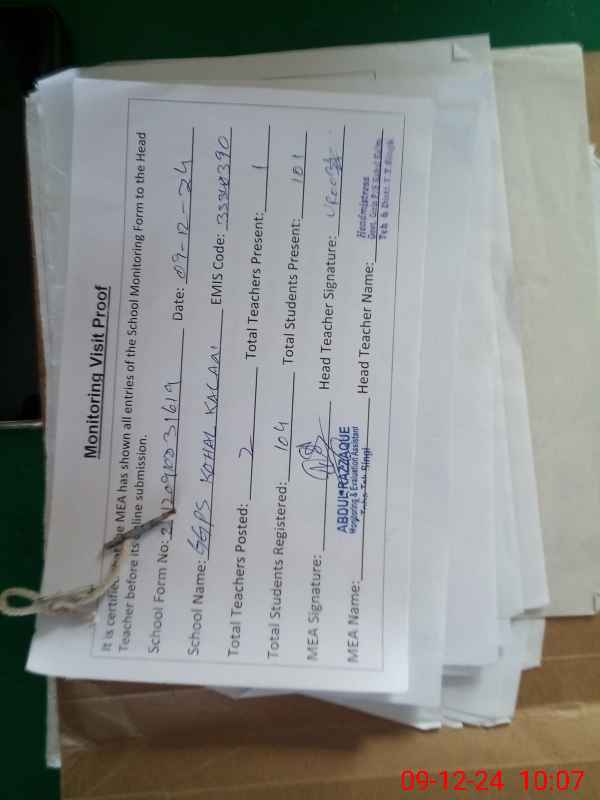 Monitoring Visit Proof
It is certified the MEA has shown all entries of the School Monitoring Form to the Head
Teacher before its line submission.
School Form No: Date: 09-12-24
School Name: GGPS KOHAL KALAAN EMIS Code:
Total Teachers Posted: 2 Total Teachers Present: 1
Total Students Registered: 104 Total Students Present: 101
MEA Signature: Head Teacher Signature:
ABDUL RAZZAQUE
Monitoring & Evaluation Assistant
Toba Tek Singh
Headmistress
MEA Name: Head Teacher Name:
09-12-24 10:07